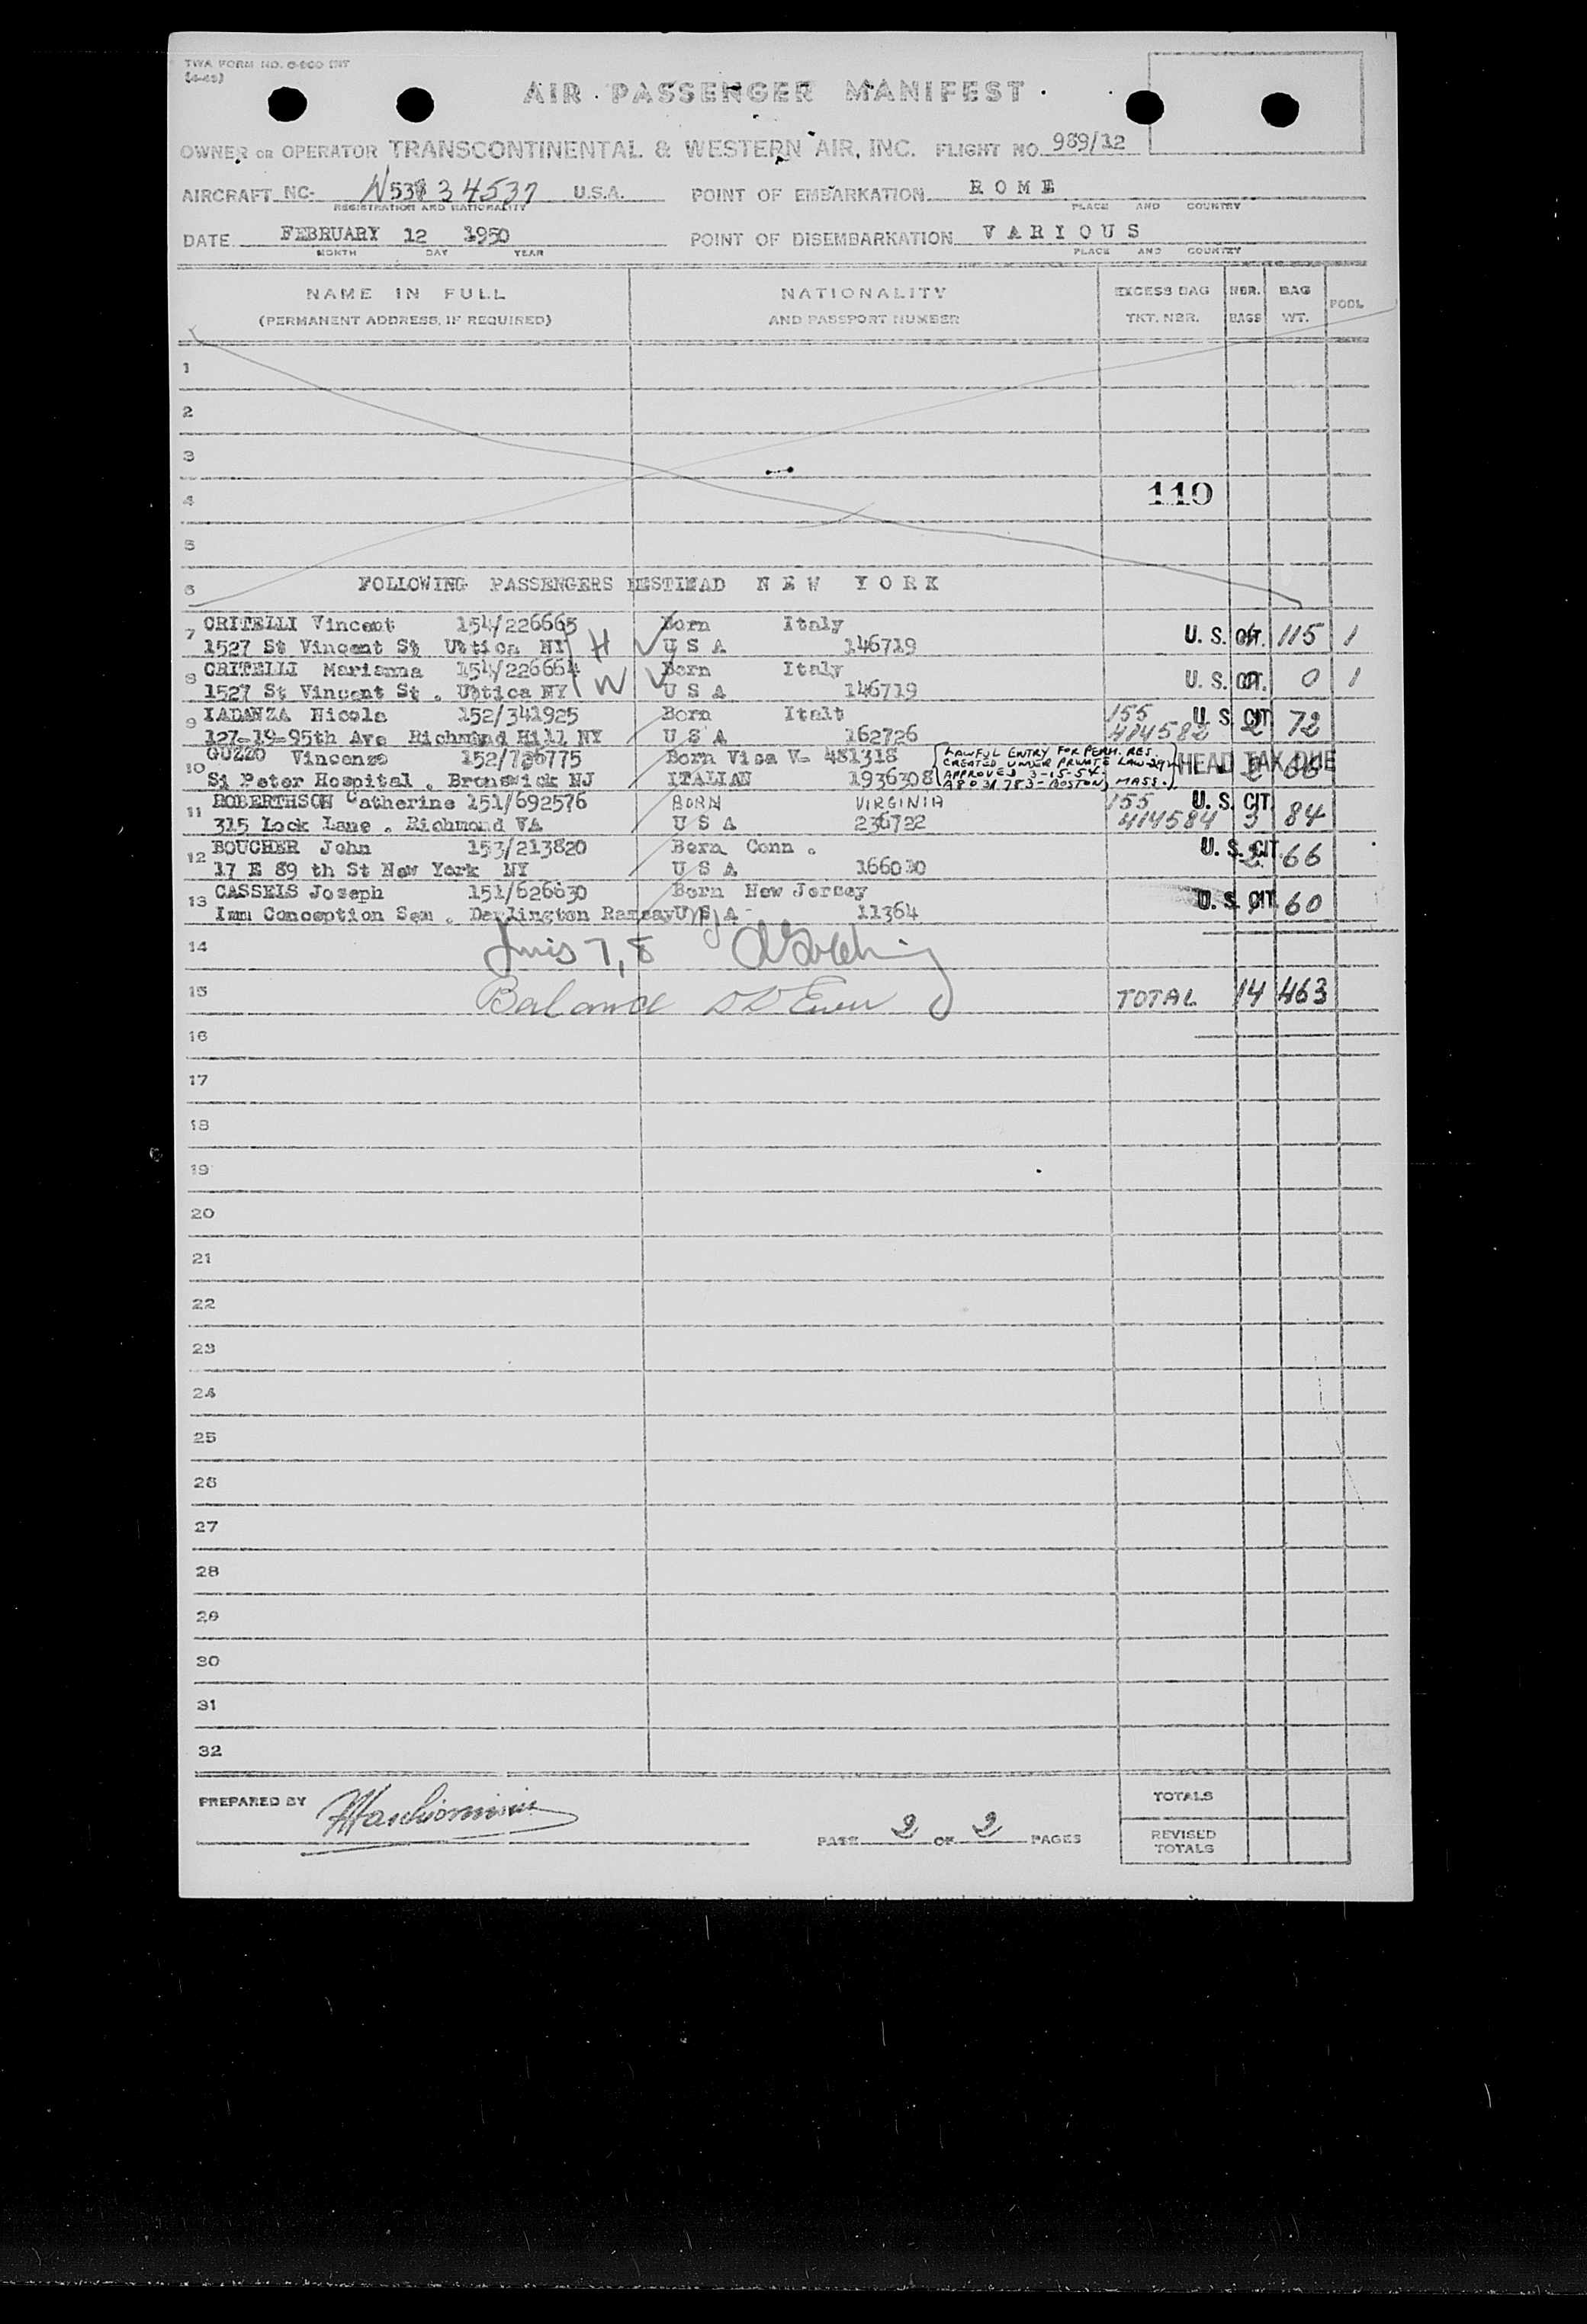 TWA FORM NO. O-200 INT
(4-49)
AIR PASSENGER MANIFEST
OWNER OR OPERATOR TRANSCONTINENTAL & WESTERN AIR, INC. FLIGHT NO. 989/12
AIRCRAFT NC- U.S.A. POINT OF EMBARKATION ROME
REGISTRATION AND NATIONALITY PLACE AND COUNTRY
DATE FEBRUARY 12 1950 POINT OF DISEMBARKATION VARIOUS
MONTH DAY YEAR PLACE AND COUNTRY
NAME IN FULL NATIONALITY EXCESS BAG NBR. BAG POOL
(PERMANENT ADDRESS, IF REQUIRED) AND PASSPORT NUMBER TKT. NBR. BAGS WT.
1
2
3
4 110
5
6 FOLLOWING PASSENGERS DESTINAD NEW YORK
7 CRITELLI Vincent 154/226665 Born Italy
1527 St Vincent St Uttica NY H U S A 146719 U. S. CIT. 115 1
8 CRITELLI Marianna 154/226664 Born Italy
1527 St Vincent St . Uttica NY W U S A 146719 U. S. CIT. 0 1
9 IADANZA Nicola 152/341925 Born Italt 155 U. S. CIT. 2 72
127-19-95th Ave Richmond Hill NY U S A 162726 414582
10 GUZZO Vincenzo 152/726775 Born Visa V- 481318 LAWFUL ENTRY FOR PERM. RES. CREATED UNDER PRIVATE LAW 291 HEAD TAX DUE 66
St Peter Hospital . Brunswick NJ ITALIAN 1936308 APPROVED 3-15-54. A8031783-BOSTON, MASS.
11 ROBERTHSON Catherine 151/692576 BORN VIRGINIA 155 U. S. CIT. 3 84
315 Lock Lane . Richmond VA U S A 236722 414584
12 BOUCHER John 153/213820 Born Conn . U. S. CIT. 2 66
17 E 89 th St New York NY U S A 166030
13 CASSELS Joseph 151/626630 Born New Jersey
Imm Conception Sem . Darlington Ramsay NJ U S A 11364 U. S. CIT. 60
14 7, 8
15 Balance TOTAL 14 463
16
17
18
19
20
21
22
23
24
25
26
27
28
29
30
31
32
PREPARED BY TOTALS
PAGE 2 OF 2 PAGES REVISED TOTALS